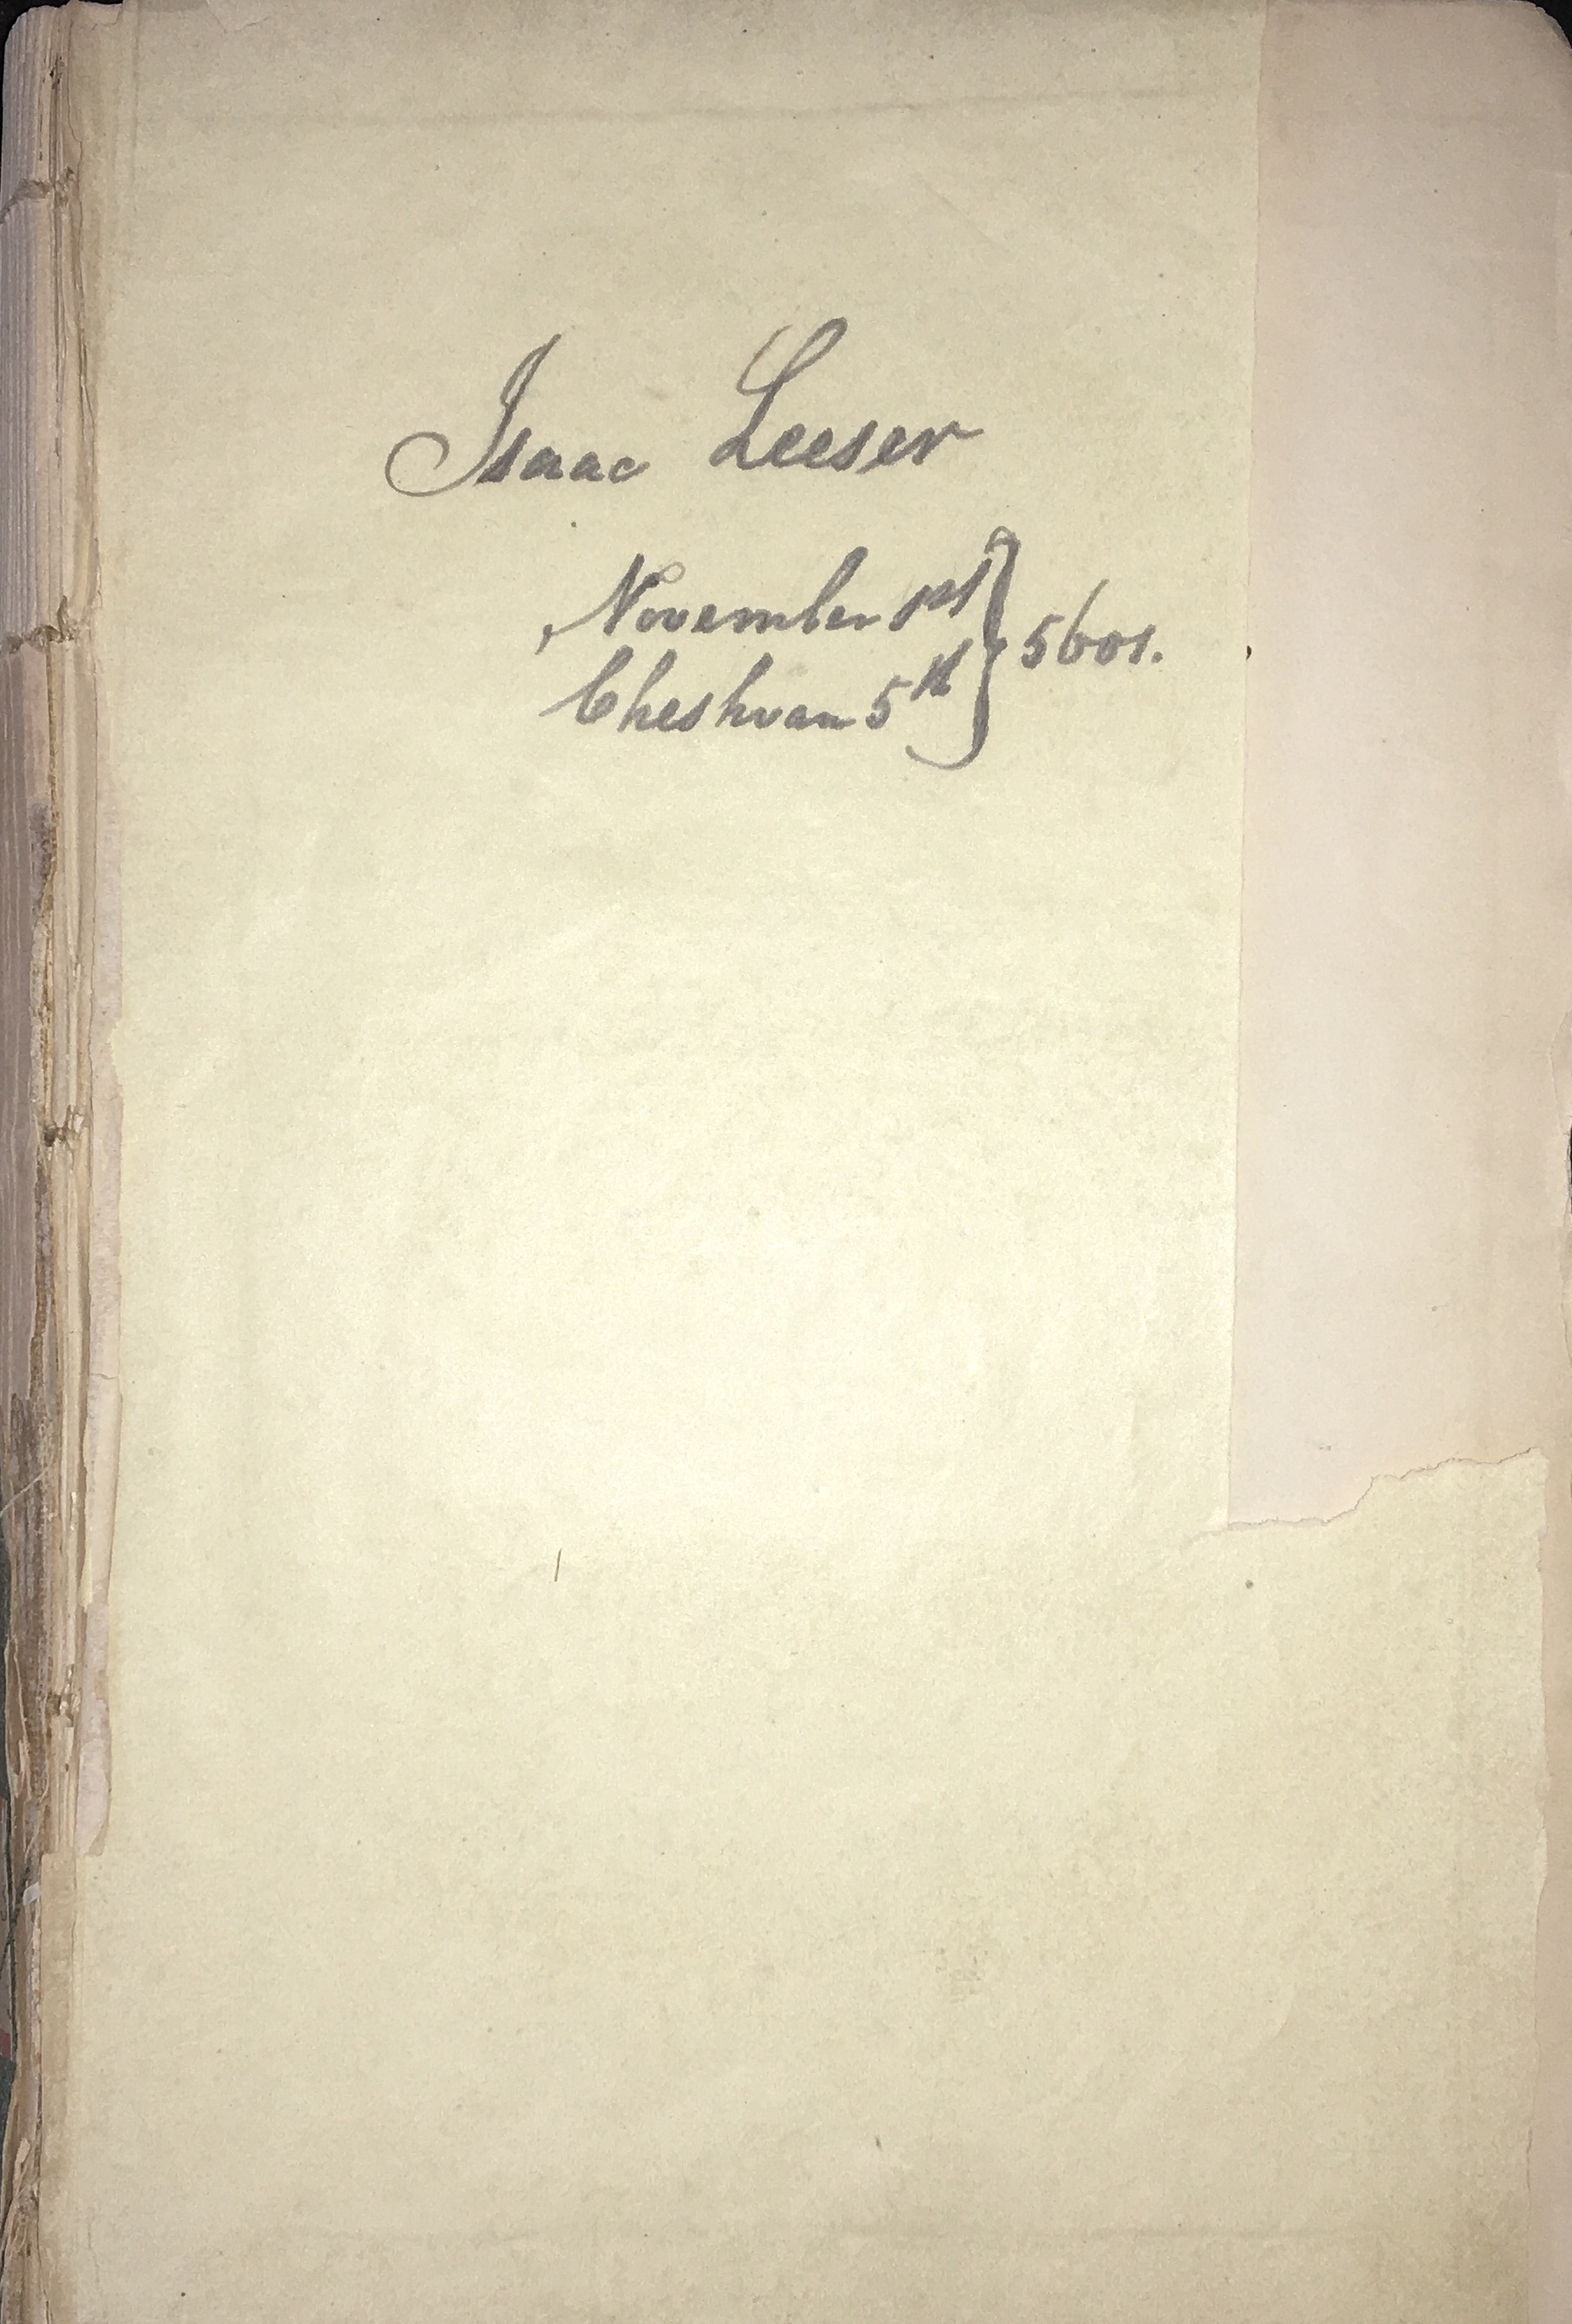 Isaac Leeser
November 1st
Cheshvan 5th } 5601.